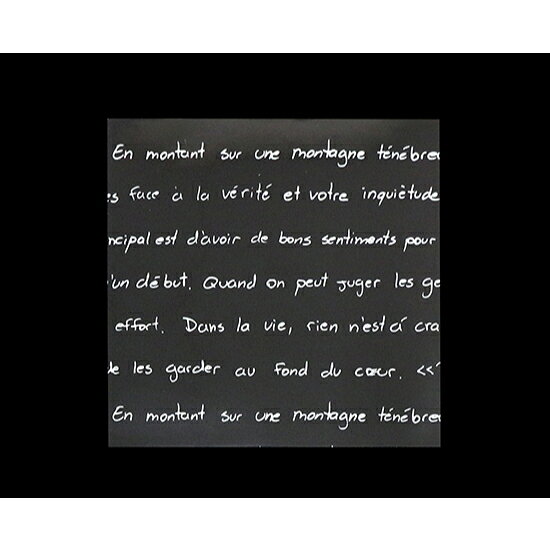 En montant sur une montagne ténébre
s face à la vérité et votre inquiètude
ncipal est d'avoir de bons sentiments pour
'un début. Quand on peut juger les ge
effort. Dans la vie, rien n'est à cra
de les garder au fond du cœur. <<
En montant sur une montagne ténébre